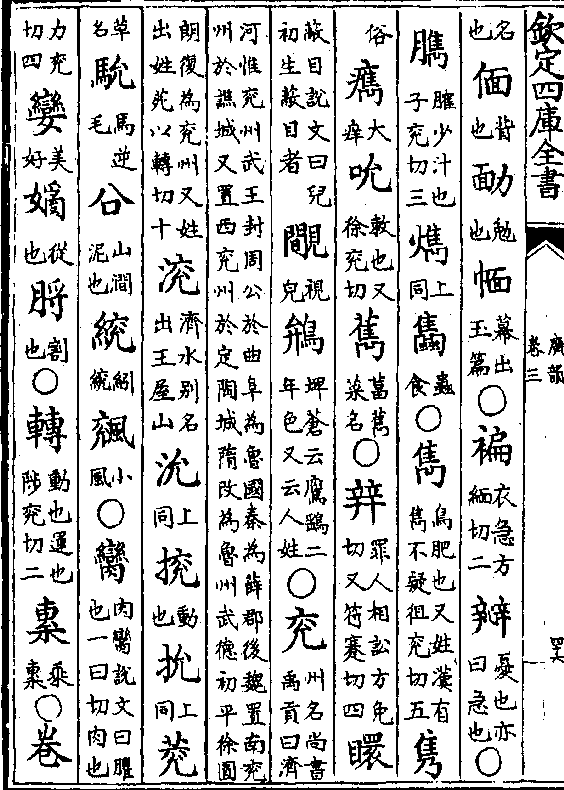 欽定四庫全書
廣韻
卷三
名也偭背也勔勉也㡈幕出玉篇○褊衣急方緬切二㦚憂也亦曰急也○
臇臛少汁也子兖切三㷷上同 蟲食○雋鳥肥也又姓漢有雋不疑徂兖切五隽
俗 大痒吮敕也又徐兖切 菜名○辡罪人相訟方免切又符蹇切四䁵
蔽目說文曰兒初生蔽目者 視皃鴘埤蒼云鷹鷂二年色又云人姓○兖州名尚書禹貢曰濟
河惟兖州武王封周公於曲阜為魯國秦為薛郡後魏置南兖州於譙城又置西兖州於定陶城隋改為魯州武德初平徐圓
朗復為兖州又姓出姓苑以轉切十渷濟水别名出王屋山沇上同 動也抁上同莌
草名䮢馬逆毛㕣山澗泥也綂紖綂 小風○臠肉臠說文曰臞也一曰切肉也
力兖切四孌美好嫡從也䏝割也○轉動也運也陟兖切二 ○卷